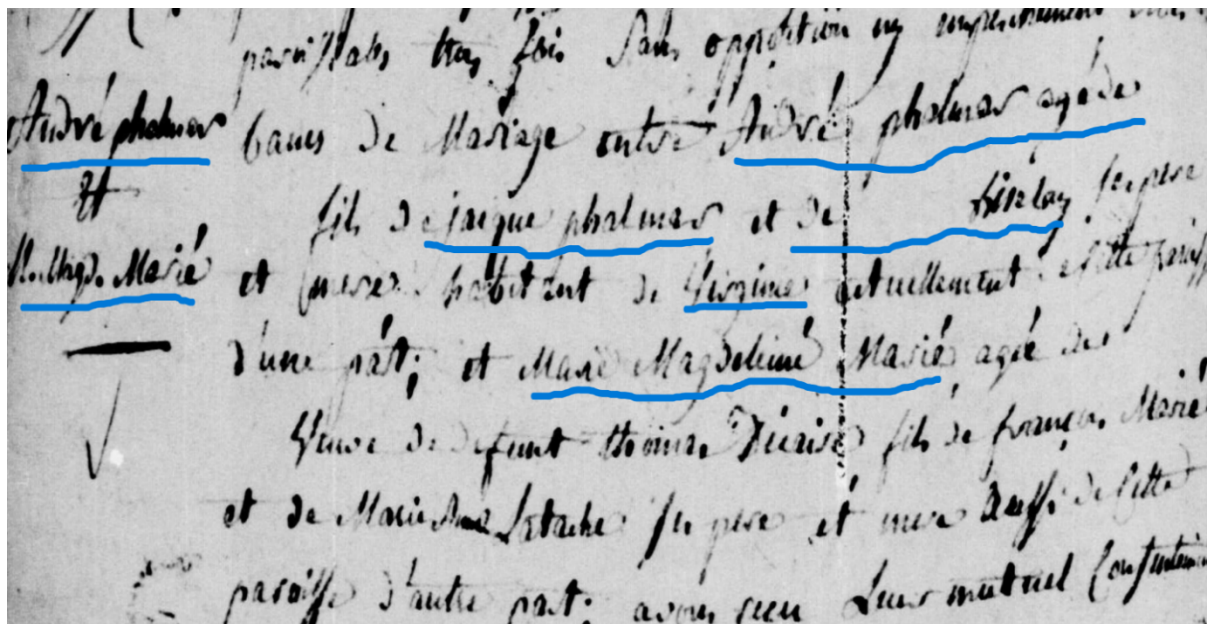 paroissiale trois fois Sans opposition ny empeschement
André phalmer
bancs de Mariage entre André phalmer agé de
Et
fils de jacque phalmer et de finelay ses pere
M. Magd. Marié
et mere habitant de Virginie actuellement de cette paroisse
d'une part; et Marie Magdeleine Marié agée de
Veuve de defunt thomas fils de françois Marié
et de Marie Anne Latache ses pere et mere aussi de cette
paroisse d'autre part; avons reçu Leur mutuel Consentement